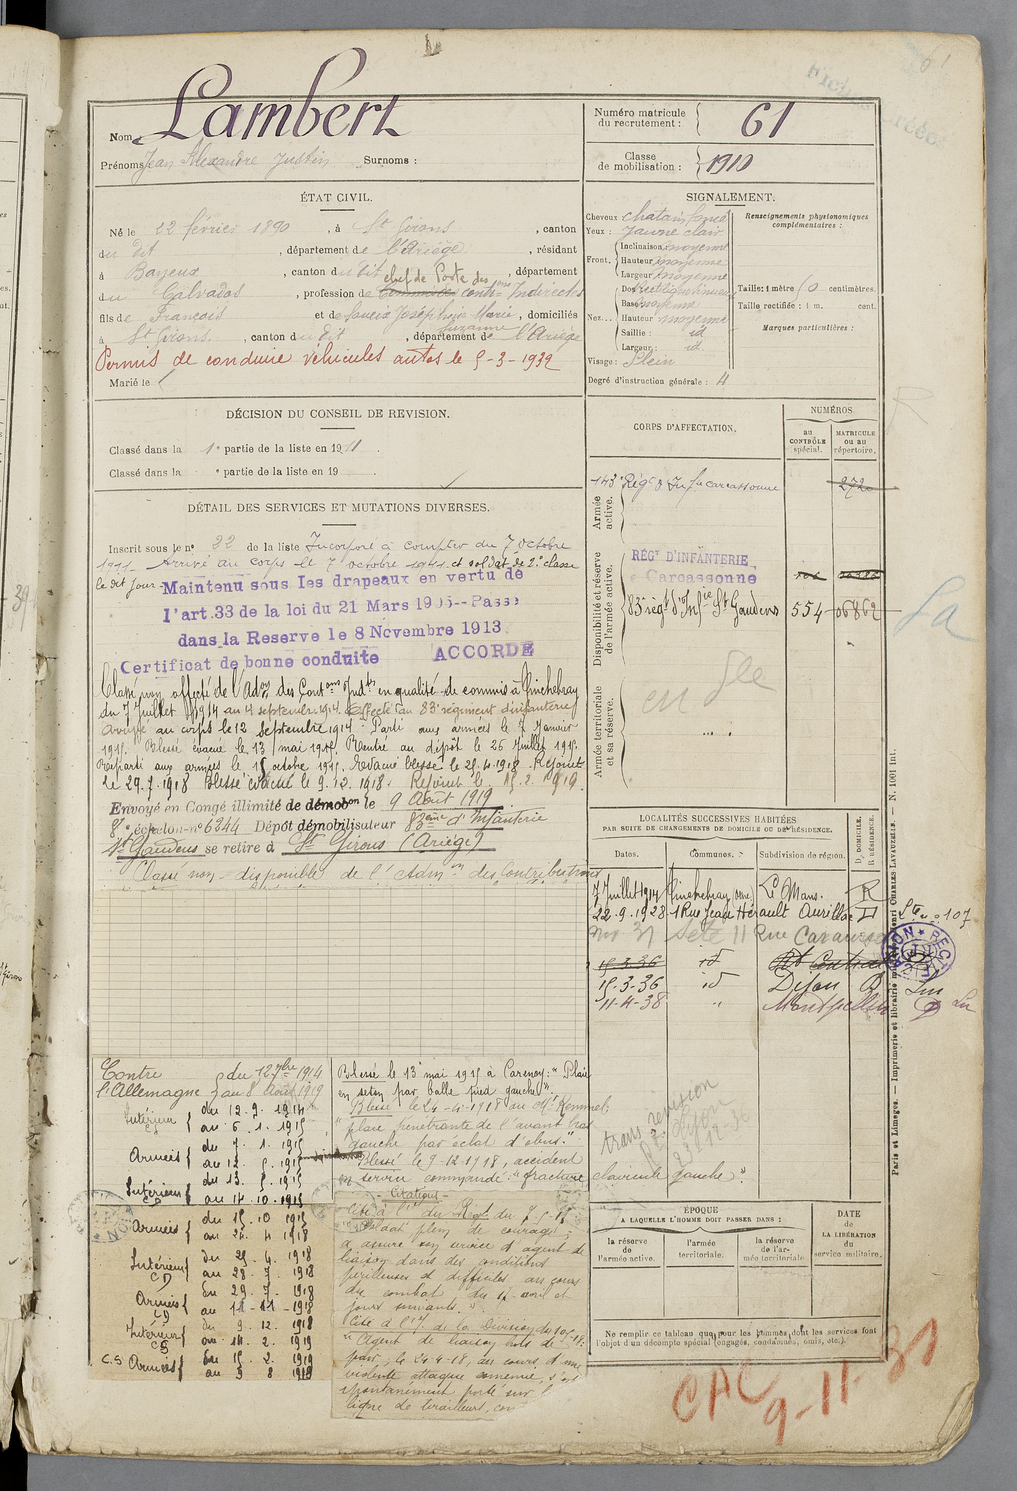 61
Nom Lambert
Prénoms Jean Alexandre Justin Surnoms :
Numéro matricule
du recrutement : 61
Classe
de mobilisation : 1910
ÉTAT CIVIL.
Né le 22 février 1890, à St Girons, canton
du dit, département de l'Ariège, résidant
à Bayeux, canton du dit, département
chef de Poste des
du Calvados, profession de Contr^ons Indirectes
fils de François et de Marie, domiciliés
Suzanne
à St Girons, canton du dit, département de l'Ariège
Permis de conduire véhicules autos le 5-3-1932
Marié le
SIGNALEMENT.
Cheveux châtain foncé
Yeux : jaune clair
Front. Inclinaison moyenne
Hauteur moyenne
Largeur moyenne
Nez... Dos rectiligne
Base moyenne
Hauteur moyenne
Saillie : id
Largeur : id
Visage : Plein
Renseignements physionomiques
complémentaires :
Taille: 1 mètre 60 centimètres.
Taille rectifiée : 1 m. cent.
Marques particulières :
Degré d'instruction générale : 4
DÉCISION DU CONSEIL DE REVISION.
Classé dans la 1e partie de la liste en 1911.
Classé dans la e partie de la liste en 19 .
DÉTAIL DES SERVICES ET MUTATIONS DIVERSES.
Inscrit sous le n° 22 de la liste Incorporé à compter du 7 octobre
1911. Arrivé au corps le 7 octobre 1911 et soldat de 2e classe
le dit jour. Maintenu sous les drapeaux en vertu de
l'art. 33 de la loi du 21 Mars 1905--Passé
dans la Reserve le 8 Novembre 1913
Certificat de bonne conduite ACCORDÉ
Classé non affecté de l'Ad^on des Cont^ons Ind^tes en qualité de commis à Tinchebray
du 7 Juillet 1914 au 4 septembre 1914. Affecté au 83e régiment d'infanterie
Arrivé au corps le 12 septembre 1914. Parti aux armées le 7 Janvier
1915. Blessé évacué le 13 mai 1915. Rentré au dépôt le 26 Juillet 1915.
Réparti aux armées le 15 octobre 1915. Evacué blessé le 25.4.1918. Rejoint
le 29.7.1918 Blessé évacué le 9.12.1918. Rejoint le 15.2.1919.
Envoyé en Congé illimité de démob^on le 9 Août 1919
8e échelon n° 6344 Dépôt démobilisateur 83eme d'Infanterie
St Gaudens se retire à St Girons (Ariège)
Classé non-disponible de l'Adm^on des Contributions
CORPS D'AFFECTATION.
NUMÉROS
au
CONTRÔLE
spécial.
MATRICULE
ou au
répertoire.
Armée
active.
143e Rég^t d'Inf^ie Carcassonne 2720
Disponibilité et réserve
de l'armée active.
RÉG^T D'INFANTERIE
Carcassonne
83e rég^t d'Inf^ie St Gaudens 554 06862
Armée territoriale
et sa réserve.
LOCALITÉS SUCCESSIVES HABITÉES
PAR SUITE DE CHANGEMENTS DE DOMICILE OU DE RÉSIDENCE.
Dates. Communes. Subdivision de région. D. DOMICILE. R. RÉSIDENCE.
7 Juillet 1914 Tinchebray (Orne) Le Mans. R
22.9.1928 1 Rue Jean Hérault Aurillac D
Nov 31 Sète 11 Rue
15-3-36 id
15-3-36 id Dijon R
11-4-38 " Montpellier D
trans. revision
Dijon
23-12-36
Contre du 12 7bre 1914
l'Allemagne au 8 Août 1919
Intérieur du 12.9.1914
au 6.1.1915
Armées du 7.1.1915
au 12.5.1915
Intérieur du 13.5.1915
au 14.10.1915
Armées du 15.10.1915
au 24.4.1918
Intérieur du 25.4.1918
au 28.7.1918
Armées du 29.7.1918
au 11-11-1918
Intérieur du 9.12.1918
au 14.2.1919
C.S Armées du 15.2.1919
au 9 8 1919
Blessé le 13 mai 1915 à Carency: "Plaie
en séton par balle pied gauche".
Blessé le 24-4-1918 au Mt Kemmel:
"plaie pénétrante de l'avant bras
gauche par éclat d'obus."
Blessé le 9-12-1918, accident
en service commandé. "fracture clavicule gauche".
- Citations -
Cité à l'O. du Régt du
"Soldat plein de courage;
a assuré son service d'agent de
liaison dans des conditions
périlleuses et difficiles au cours
du combat du 14 avril et
jours suivants."
Cité à l'O. de la Division du
"Agent de liaison
le 24-4-18, au cours d'une
violente attaque ennemie, s'est
spontanément porté sur la
ligne de tirailleurs,
ÉPOQUE
A LAQUELLE L'HOMME DOIT PASSER DANS :
la réserve
de
l'armée active.
l'armée
territoriale.
la réserve
de l'ar-
mée territoriale.
DATE
de
LA LIBÉRATION
du
service militaire.
Ne remplir ce tableau que pour les hommes dont les services font
l'objet d'un décompte spécial (engagés, condamnés, omis, etc.).
CAC
9-11-31
Paris et Limoges. — Imprimerie et librairie militaires Henri CHARLES LAVAUZELLE. — N. 1001 int.